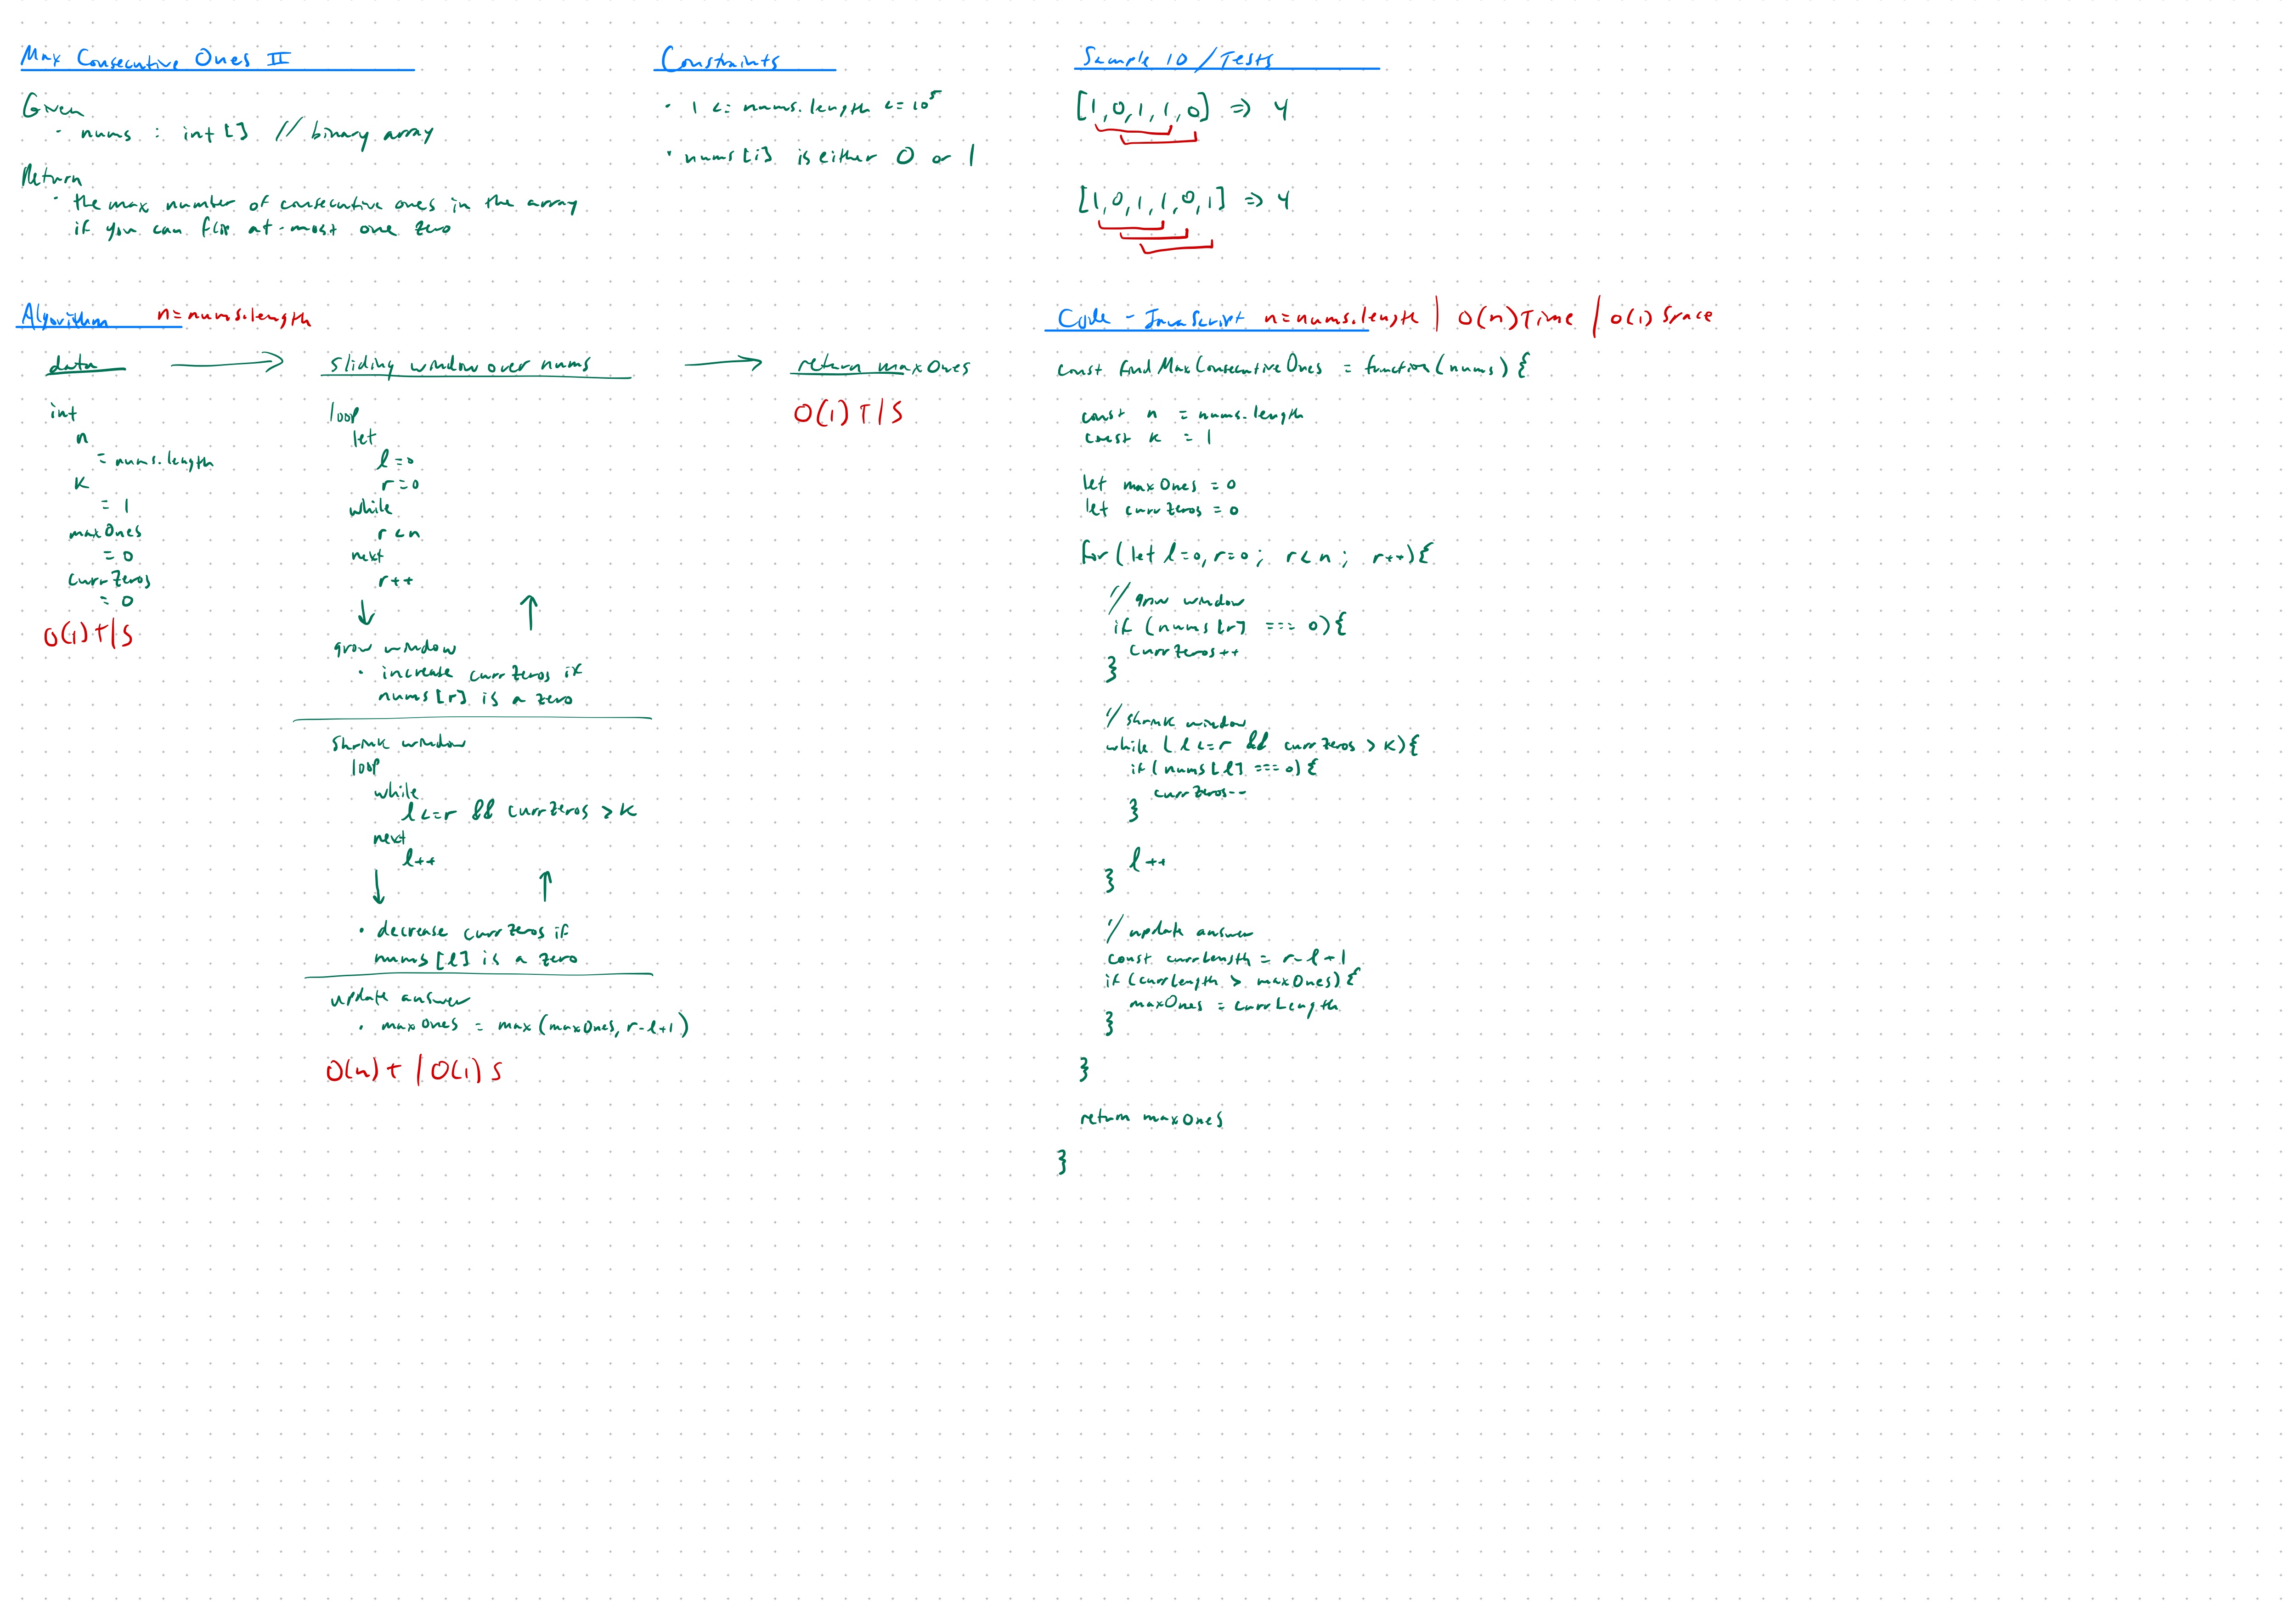 Max Consecutive Ones II
Given
· nums : int[] // binary array
Return
· the max number of consecutive ones in the array
if you can flip at-most one zero
Constraints
· 1 <= nums.length <= 10^5
· nums[i] is either 0 or 1
Sample IO / Tests
[1,0,1,1,0] => 4
[1,0,1,1,0,1] => 4
Algorithm n=nums.length
data
int
n
= nums.length
K
= 1
maxOnes
= 0
currZeros
= 0
O(1) T|S
sliding window over nums
loop
let
l=0
r=0
while
r<n
next
r++
grow window
· increase currZeros if
nums[r] is a zero
shrink window
loop
while
l<=r && currZeros > K
next
l++
· decrease currZeros if
nums[l] is a zero
update answer
· maxOnes = max(maxOnes, r-l+1)
O(n) T | O(1) S
return maxOnes
O(1) T|S
Code - JavaScript n=nums.length | O(n) Time | O(1) Space
const findMaxConsecutiveOnes = function(nums) {
const n = nums.length
const K = 1
let maxOnes = 0
let currZeros = 0
for (let l=0, r=0; r<n; r++){
// grow window
if (nums[r] === 0){
currZeros++
}
// shrink window
while (l<=r && currZeros > K){
if (nums[l] === 0) {
currZeros--
}
l++
}
// update answer
const currLength = r-l+1
if (currLength > maxOnes) {
maxOnes = currLength
}
}
return maxOnes
}